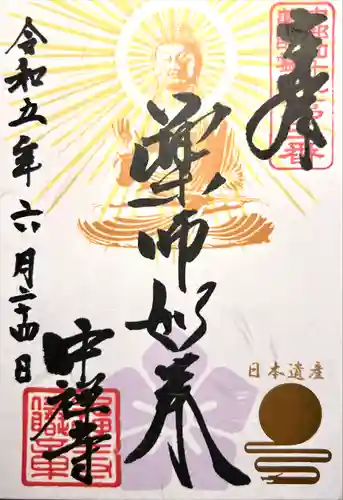 奉拝
薬師如来
令和五年六月二十四日
中禅寺
日本遺産